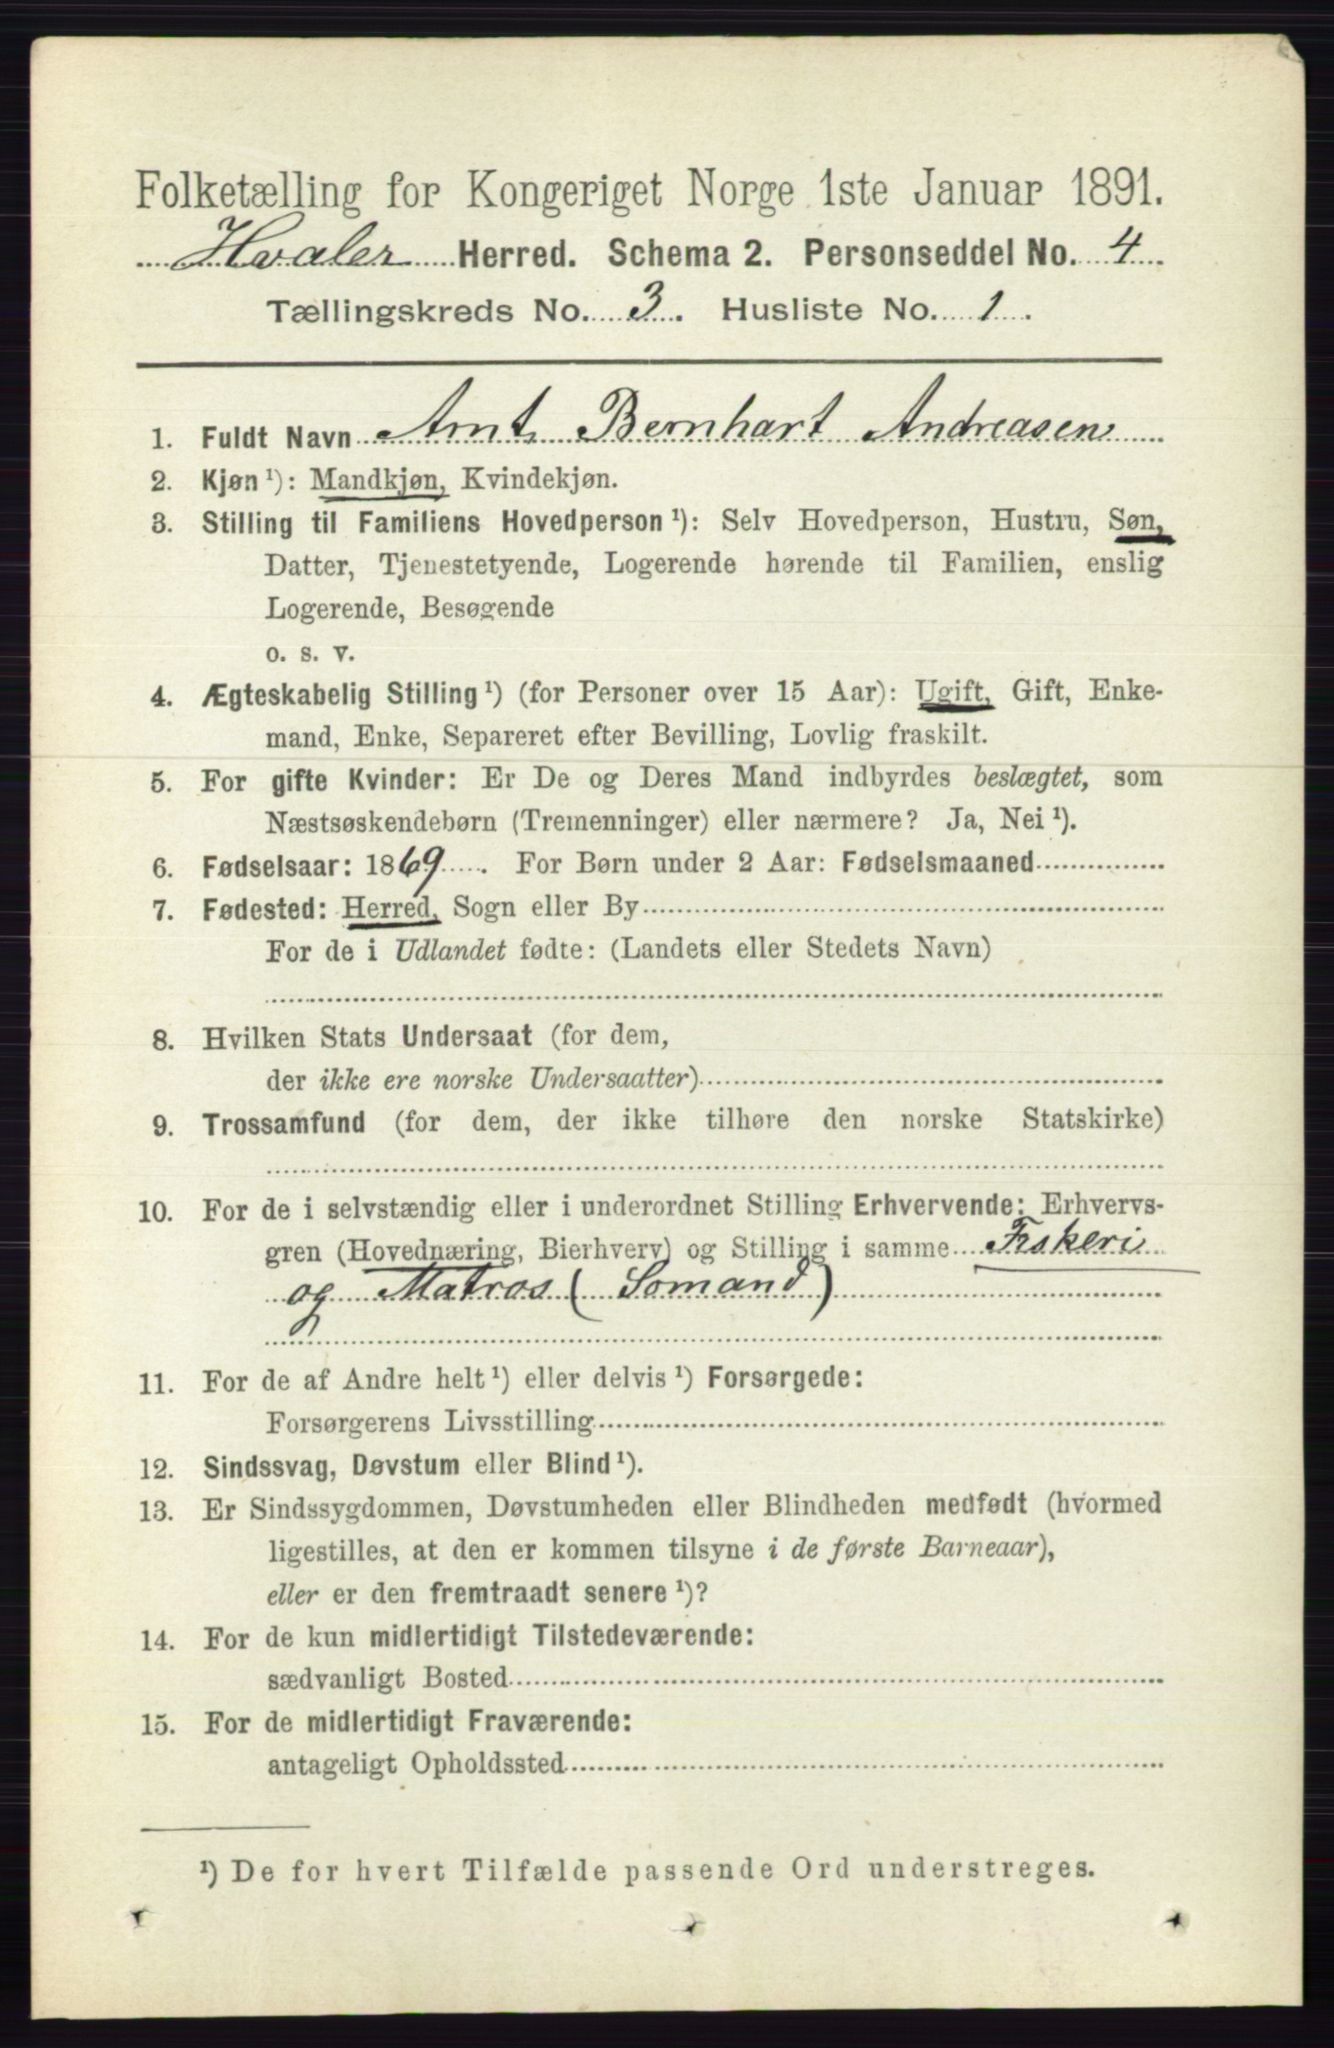 Folketælling for Kongeriget Norge 1ste Januar 1891.
Hvaler Herred. Schema 2. Personseddel No. 4
Tællingskreds No. 3. Husliste No. 1.
1. Fuldt Navn Arnt Bernhart Andreasen
2. Kjøn ¹): Mandkjøn, Kvindekjøn.
3. Stilling til Familiens Hovedperson ¹): Selv Hovedperson, Hustru, Søn,
Datter, Tjenestetyende, Logerende hørende til Familien, enslig
Logerende, Besøgende
o. s. v.
4. Ægteskabelig Stilling ¹) (for Personer over 15 Aar): Ugift, Gift, Enke-
mand, Enke, Separeret efter Bevilling, Lovlig fraskilt.
5. For gifte Kvinder: Er De og Deres Mand indbyrdes beslægtet, som
Næstsøskendebørn (Tremenninger) eller nærmere? Ja, Nei ¹).
6. Fødselsaar: 1869. For Børn under 2 Aar: Fødselsmaaned
7. Fødested: Herred, Sogn eller By
For de i Udlandet fødte: (Landets eller Stedets Navn)
8. Hvilken Stats Undersaat (for dem,
der ikke ere norske Undersaatter)
9. Trossamfund (for dem, der ikke tilhøre den norske Statskirke)
10. For de i selvstændig eller i underordnet Stilling Erhvervende: Erhvervs-
gren (Hovednæring, Bierhverv) og Stilling i samme Fiskeri
og Matros (Somand)
11. For de af Andre helt ¹) eller delvis ¹) Forsørgede:
Forsørgerens Livsstilling
12. Sindssvag, Døvstum eller Blind ¹).
13. Er Sindssygdommen, Døvstumheden eller Blindheden medfødt (hvormed
ligestilles, at den er kommen tilsyne i de første Barneaar),
eller er den fremtraadt senere ¹)?
14. For de kun midlertidigt Tilstedeværende:
sædvanligt Bosted
15. For de midlertidigt Fraværende:
antageligt Opholdssted
¹) De for hvert Tilfælde passende Ord understreges.